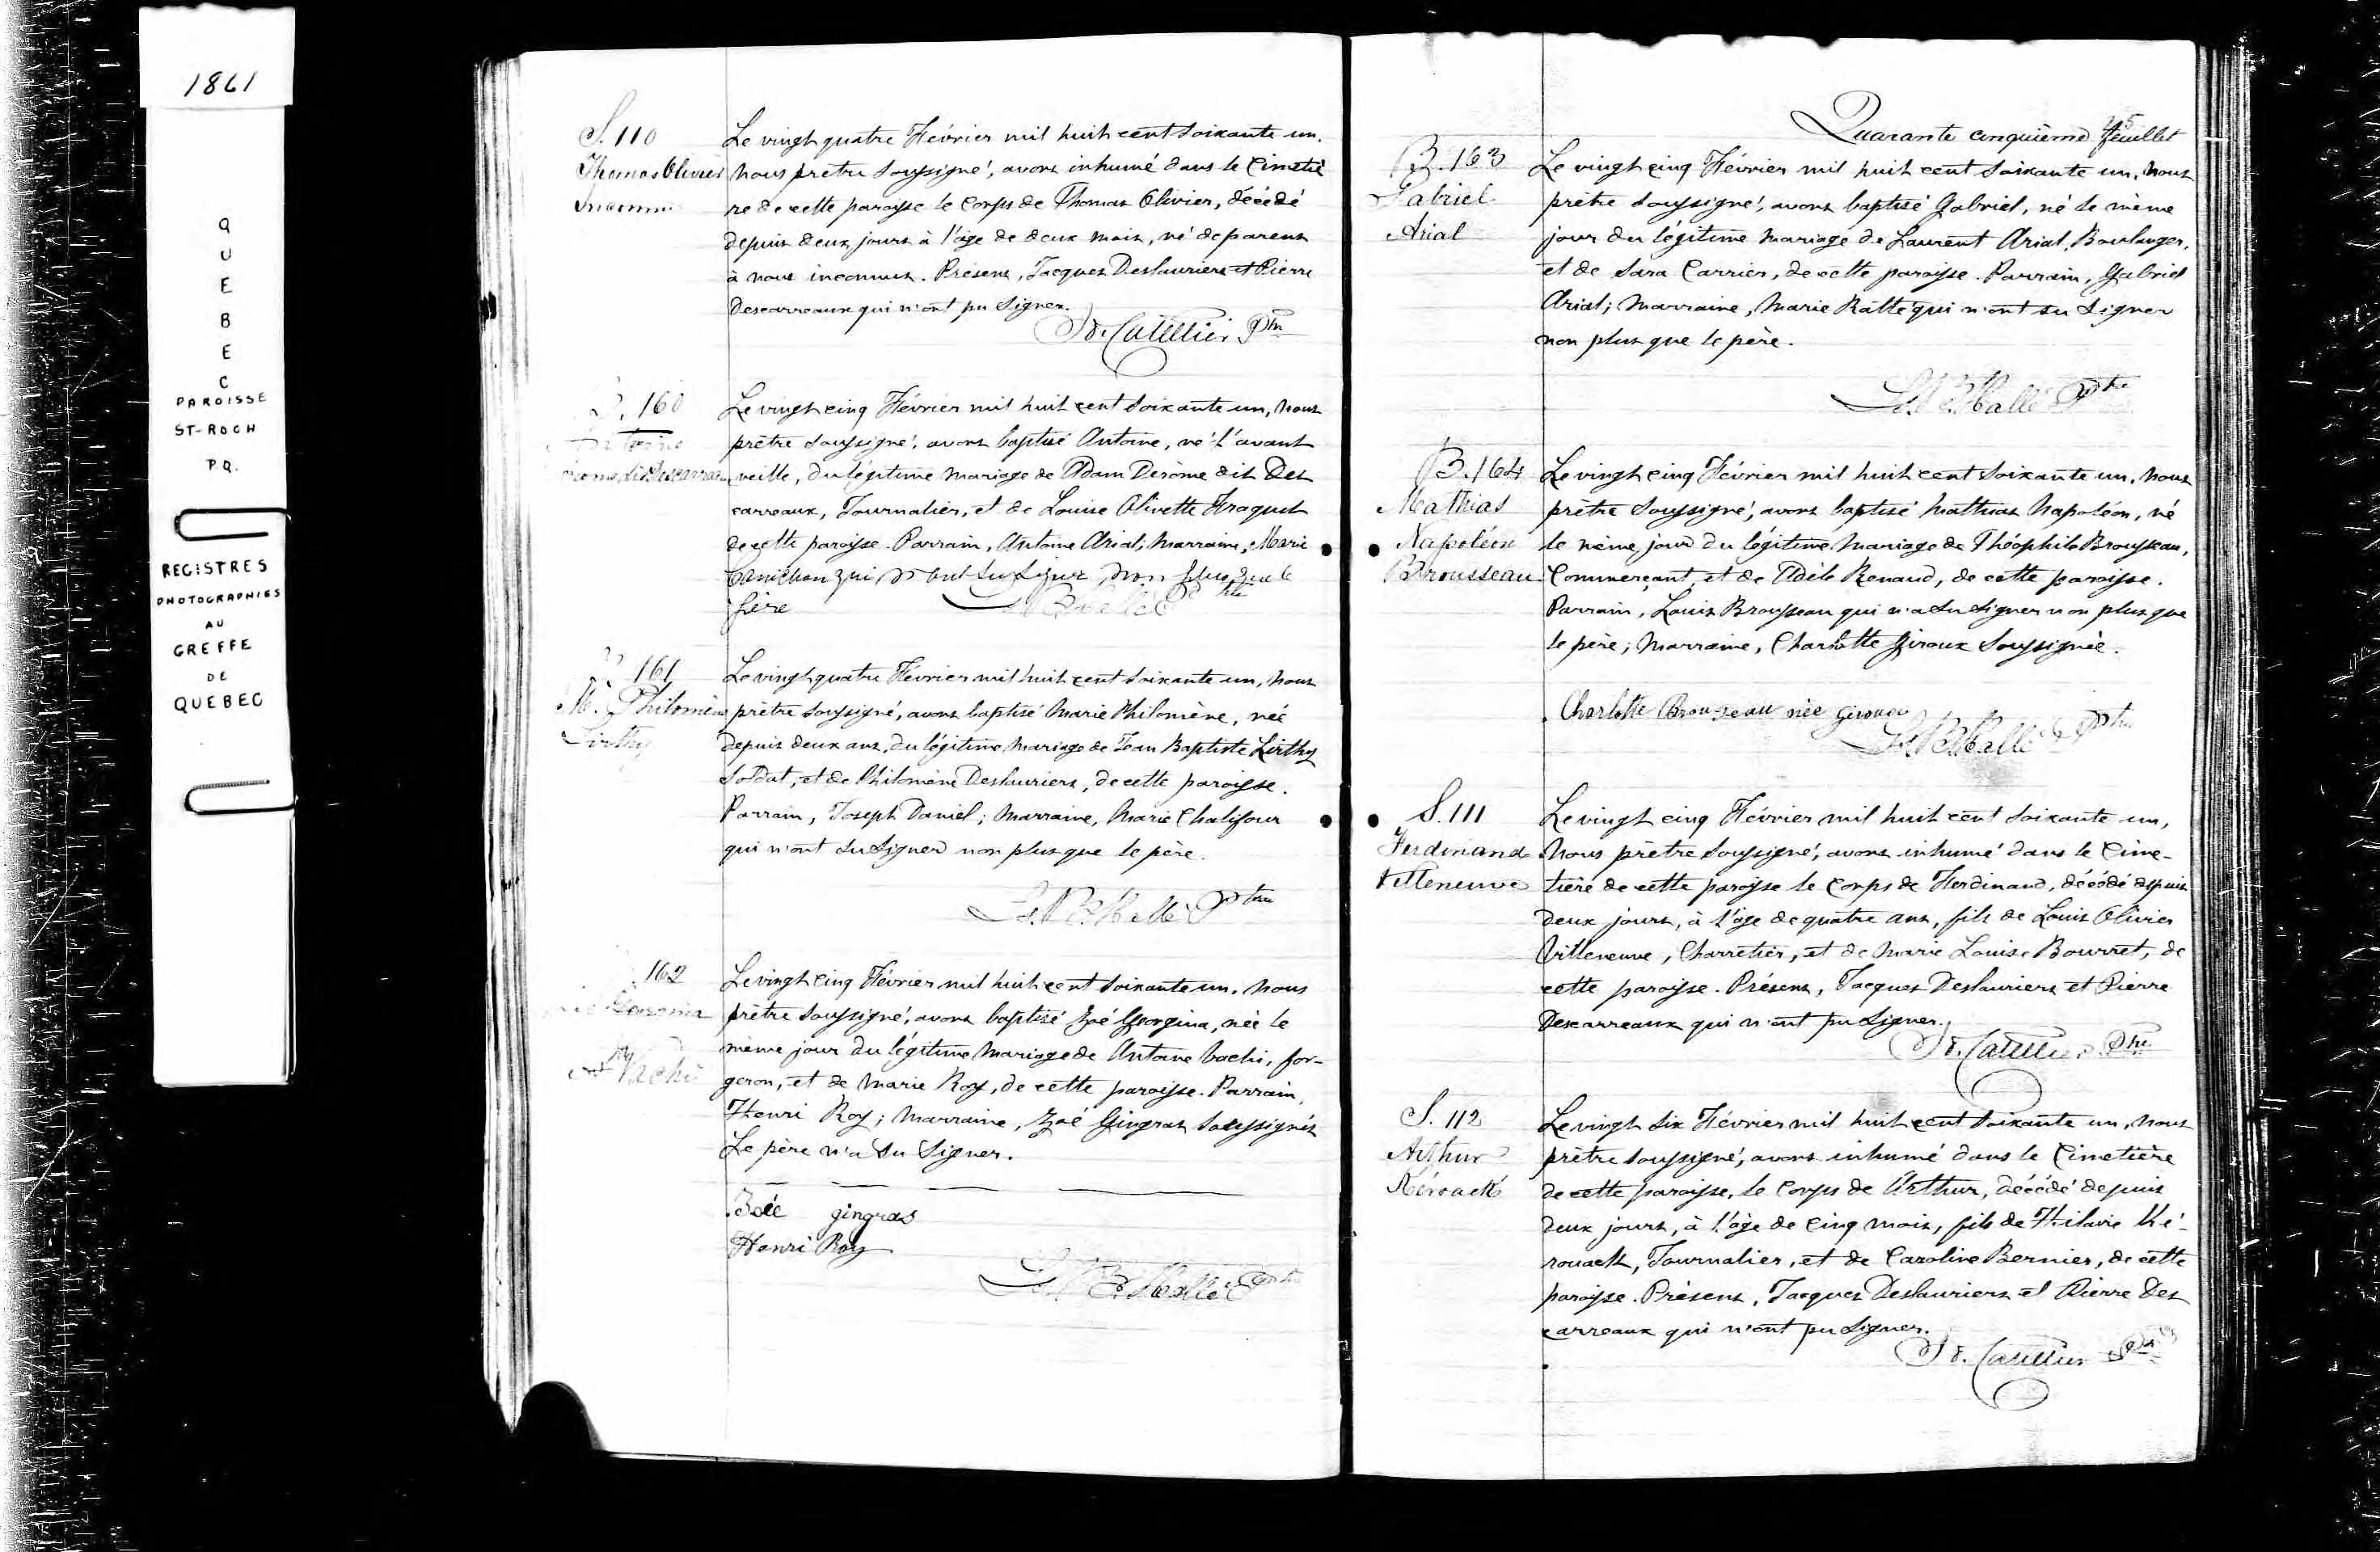 1861
QUEBEC
PAROISSE
ST-ROCH
P.Q.
REGISTRES
PHOTOGRAPHIES
AU
GREFFE
DE
QUEBEC
S. 110
Thomas Olivier
Inconnu
Le vingt quatre Février mil huit cent soixante un.
Nous prêtre soussigné, avons inhumé dans le Cimetiè
re de cette paroisse le Corps de Thomas Olivier, décédé
depuis deux jours à l'âge de deux mois, né de parens
à nous inconnus. Présens, Jacques Deslauriers et Pierre
Descarreaux qui n'ont pu signer.
Ptre
160
Le vingt cinq Février mil huit cent soixante un, nous
prêtre soussigné, avons baptisé Antoine, né l'avant
veille, du légitime mariage de Adam Derome dit Des
carreaux, Journalier, et de Louise Olivette Fraquet
de cette paroisse. Parrain, Antoine Arial; Marraine, Marie
qui n'ont su signer, non plus que le
père
Ptre
161
M. Philomène
Lirthy
Le vingt quatre Février mil huit cent soixante un, nous
prêtre soussigné, avons baptisé Marie Philomène, née
depuis deux ans, du légitime mariage de Jean Baptiste Lirthy
Soldat, et de Philomène Deslauriers, de cette paroisse.
Parrain, Joseph Daniel; Marraine, Marie Chalifour
qui n'ont su signer non plus que le père.
Ptre
162
Le vingt cinq Février mil huit cent soixante un, nous
prêtre soussigné, avons baptisé Zoé Georgina, née le
même jour du légitime mariage de Antoine Vachi, for-
geron, et de Marie Roy, de cette paroisse. Parrain,
Henri Roy; Marraine, Zoé Gingras soussignés
Le père n'a su signer.
Zoée gingras
Henri Roy
Ptre
45
Quarante cinquième feuillet
B. 163
Gabriel
Arial
Le vingt cinq Février mil huit cent soixante un, nous
prêtre soussigné, avons baptisé Gabriel, né le même
jour du légitime mariage de Laurent Arial, Boulanger,
et de Sara Carrier, de cette paroisse. Parrain, Gabriel
Arial; Marraine, Marie Ratté qui n'ont su signer
non plus que le père.
Ptre
B. 164
Mathias
Napoléon
Brousseau
Le vingt cinq Février mil huit cent soixante un, nous
prêtre soussigné, avons baptisé Mathias Napoléon, né
le même jour du légitime mariage de Théophile Brousseau,
Commerçant, et de Adèle Renaud, de cette paroisse.
Parrain, Louis Brousseau qui n'a su signer non plus que
le père; Marraine, Charlotte Giroux soussignée.
Charlotte Brousseau née Giroux
Ptre
S. 111
Ferdinand
Villeneuve
Le vingt cinq Février mil huit cent soixante un,
Nous prêtre soussigné, avons inhumé dans le Cime-
tière de cette paroisse le Corps de Ferdinand, décédé depuis
deux jours, à l'âge de quatre ans, fils de Louis Olivier
Villeneuve, Charretier, et de Marie Louise Bourret, de
cette paroisse. Présens, Jacques Deslauriers et Pierre
Descarreaux qui n'ont pu signer.
Ptre
S. 112
Arthur
Kérouack
Le vingt six Février mil huit cent soixante un, nous
prêtre soussigné, avons inhumé dans le Cimetière
de cette paroisse, le Corps de Arthur, décédé depuis
deux jours, à l'âge de cinq mois, fils de Hilaire Ké-
rouack, Journalier, et de Caroline Bernier, de cette
paroisse. Présens, Jacques Deslauriers et Pierre Des
carreaux qui n'ont pu signer.
Ptre